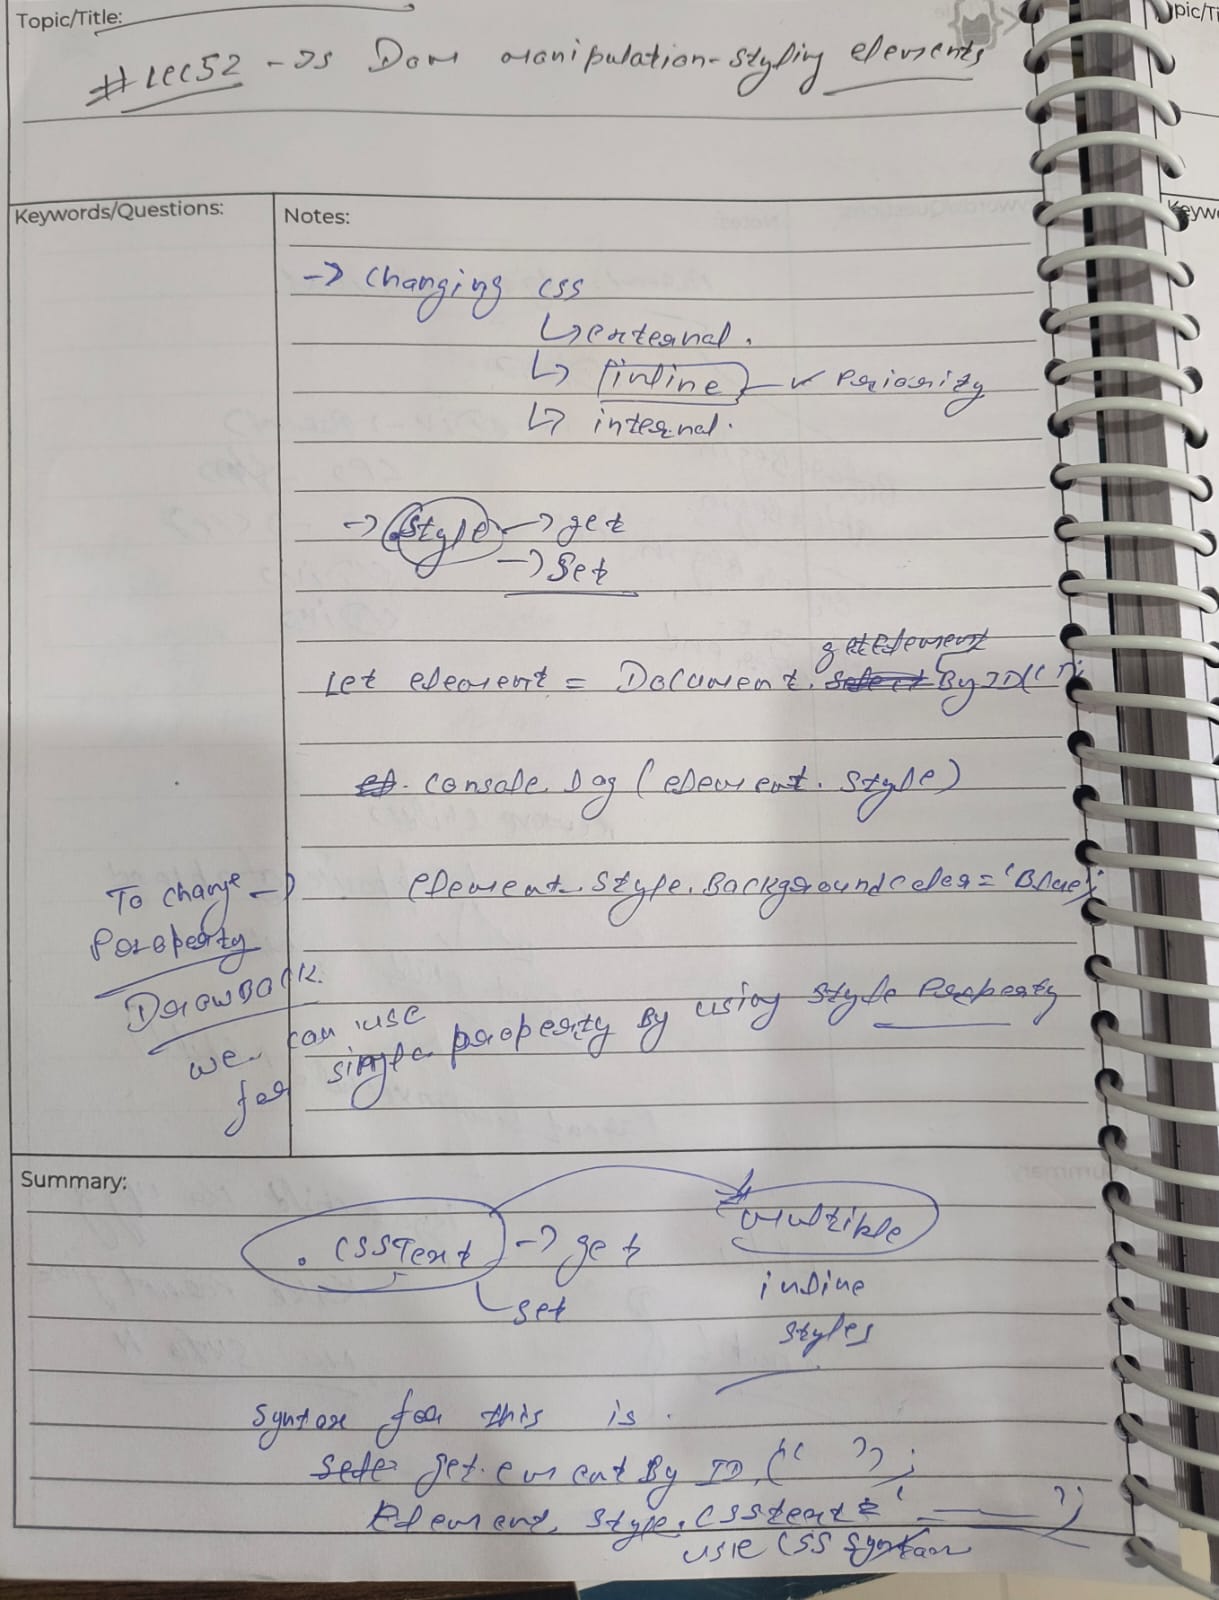 Topic/Title:
#Lec52 - JS Dom manipulation-styling elements
Keywords/Questions:
Notes:
-> changing css
↳ external.
↳ inline ✓ Periority
↳ internal.
-> .style -> get
-> Set
getElement
Let element = Document. Select By ID(' ');
el. console.log (element. style)
To change ->
Poroperty
element. Style. Backgroundcolor = 'Blue';
DrawBack.
we can use
for single property By using style Property
Summary:
. CSSText -> get
set
multiple
inline
styles
Syntax for this is.
Sele get.ement By ID. (" ");
Element. style. CSStext = ' ——— ')
use CSS Syntax